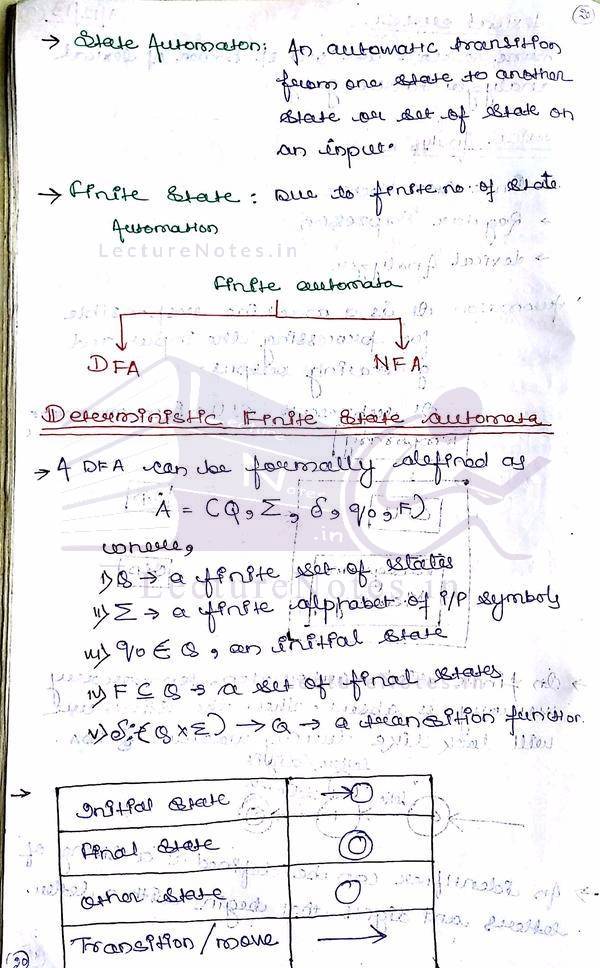 20
→ State Automaton: An automatic transition
from one state to another
state or set of state on
an input.
→ Finite State : Due to finite no. of state
Automation
LectureNotes.in
Finite automata
DFA NFA
Deterministic Finite State automata
→ A DFA can be formally defined as
A = (Q, Σ, δ, q0, F)
where,
i) Q → a finite set of states
ii) Σ → a finite alphabet of i/p symbols
iii) q0 ∈ Q, an initial state
iv) F ⊆ Q → a set of final states
v) δ: (Q x Σ) → Q → a transition function.
→ Initial state →○
Final state ◎
Other state ○
Transition/move →
20